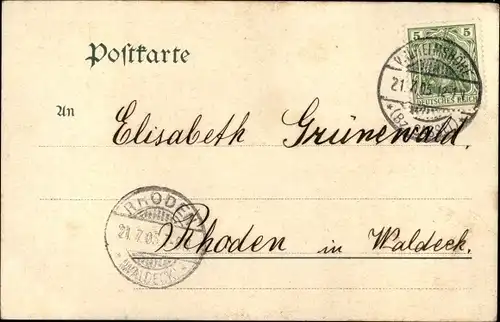 Postkarte
5 5
WILHELMSHÖHE
21.7.05.12-1
DEUTSCHES REICH
An
Elisabeth Grünewald,
RHODEN
21.7.05
(WALDECK)
Rhoden in Waldeck.